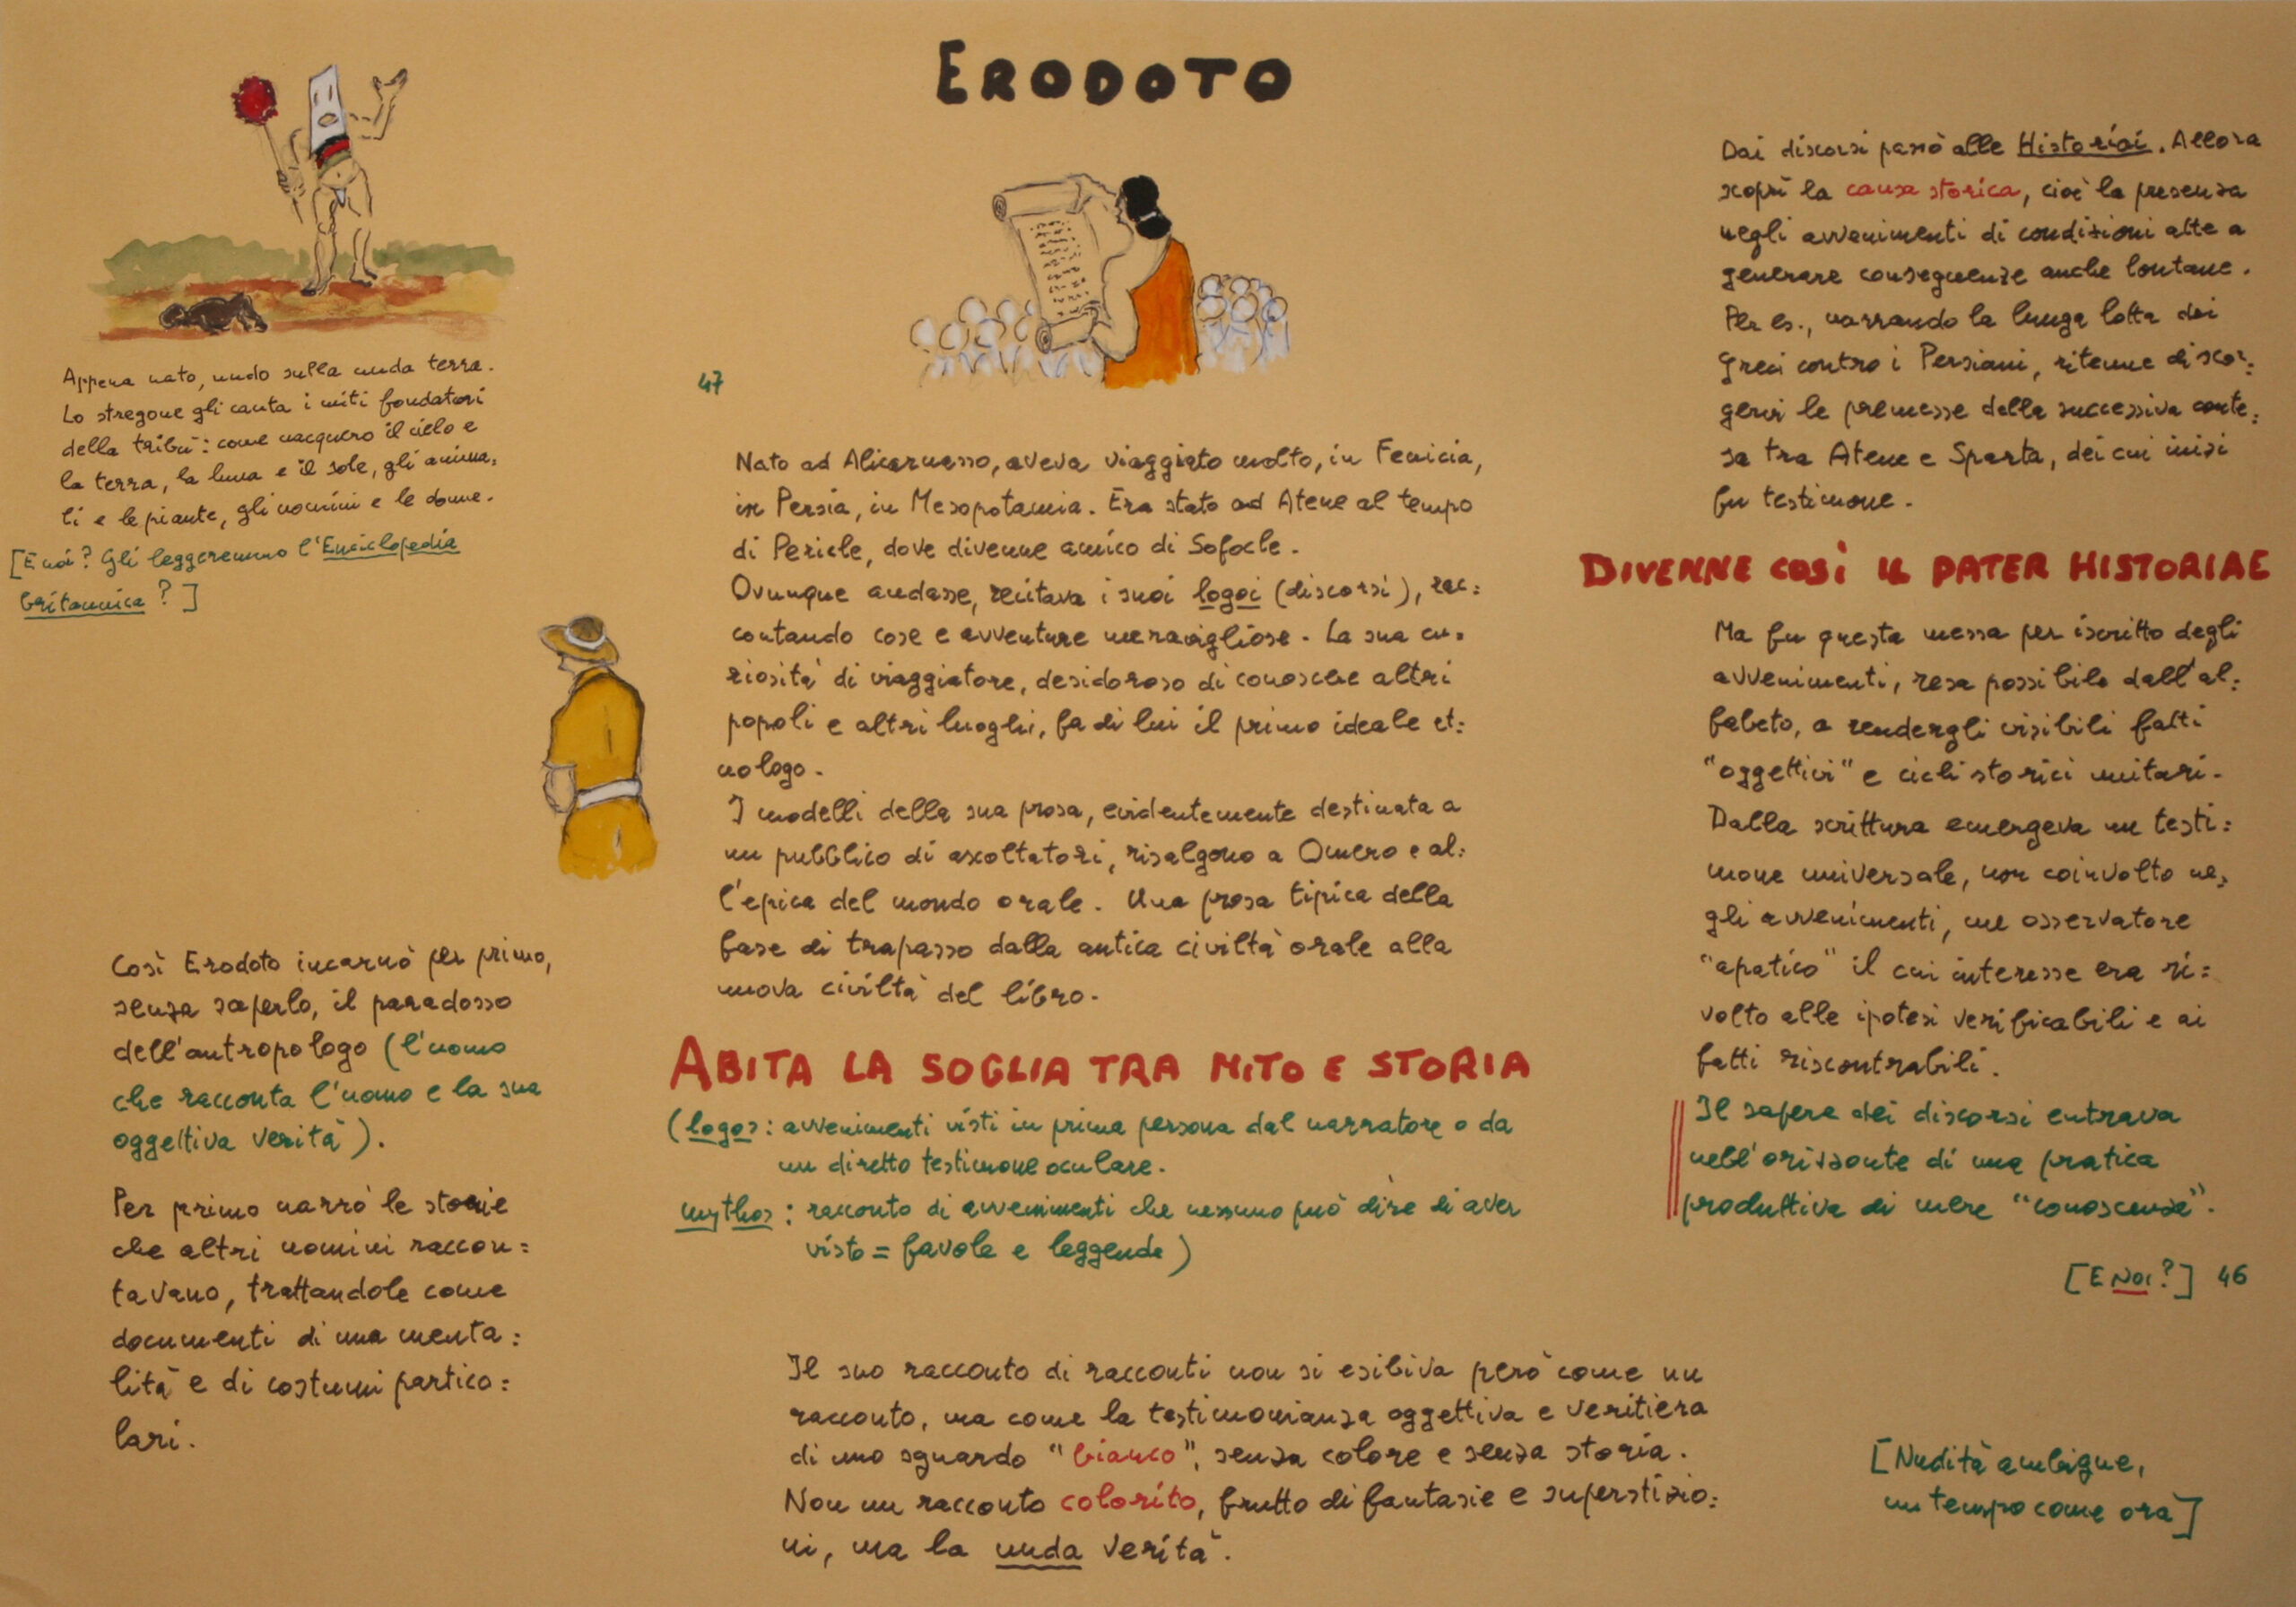 ERODOTO
Appena nato, nudo sulla nuda terra.
Lo stregone gli canta i miti fondatori
della tribù: come nacquero il cielo e
la terra, la luna e il sole, gli anima=
li e le piante, gli uomini e le donne.
[E noi? Gli leggeremmo l'Enciclopedia
britannica?]
Così Erodoto incarnò per primo,
senza saperlo, il paradosso
dell'antropologo (l'uomo
che racconta l'uomo e la sua
oggettiva verità).
Per primo narrò le storie
che altri uomini raccon=
tavano, trattandole come
documenti di una menta=
lità e di costumi partico=
lari.
47
Nato ad Alicarnasso, aveva viaggiato molto, in Fenicia,
in Persia, in Mesopotamia. Era stato ad Atene al tempo
di Pericle, dove divenne amico di Sofocle.
Ovunque andasse, recitava i suoi logoi (discorsi), rac=
contando cose e avventure meravigliose. La sua cu=
riosità di viaggiatore, desideroso di conoscere altri
popoli e altri luoghi, fa di lui il primo ideale et=
nologo.
I modelli della sua prosa, evidentemente destinata a
un pubblico di ascoltatori, risalgono a Omero e al=
l'epica del mondo orale. Una prosa tipica della
fase di trapasso dalla antica civiltà orale alla
nuova civiltà del libro.
ABITA LA SOGLIA TRA MITO E STORIA
(logos: avvenimenti visti in prima persona dal narratore o da
un diretto testimone oculare.
mythos: racconto di avvenimenti che nessuno può dire di aver
visto = favole e leggende)
Il suo racconto di racconti non si esibiva però come un
racconto, ma come la testimonianza oggettiva e veritiera
di uno sguardo "bianco", senza colore e senza storia.
Non un racconto colorito, frutto di fantasie e superstizio=
ni, ma la nuda verità.
Dai discorsi passò alle Historiai. Allora
scoprì la causa storica, cioè la presenza
negli avvenimenti di condizioni atte a
generare conseguenze anche lontane.
Per es., narrando la lunga lotta dei
Greci contro i Persiani, ritenne di scor=
gervi le premesse della successiva conte=
sa tra Atene e Sparta, dei cui inizi
fu testimone.
DIVENNE COSÌ IL PATER HISTORIAE
Ma fu questa messa per iscritto degli
avvenimenti, resa possibile dall'al=
fabeto, a rendergli visibili fatti
"oggettivi" e cicli storici unitari.
Dalla scrittura emergeva un testi=
mone universale, non coinvolto ne=
gli avvenimenti, un osservatore
"apatico" il cui interesse era ri=
volto alle ipotesi verificabili e ai
fatti riscontrabili.
Il sapere dei discorsi entrava
nell'orizzonte di una pratica
produttiva di mere "conoscenze".
[E NOI?] 46
[Nudità ambigue,
un tempo come ora]